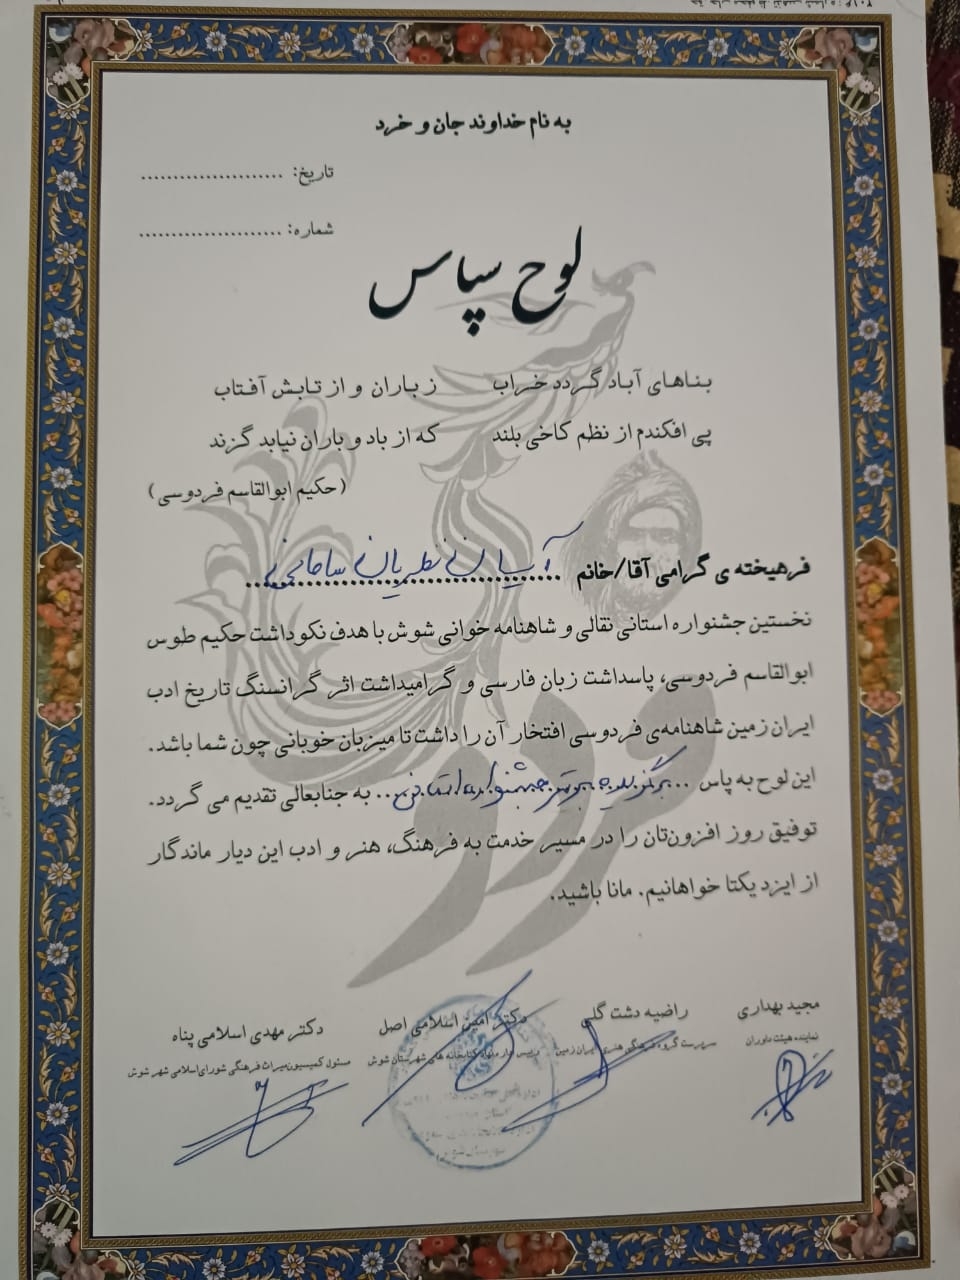 به نام خداوند جان و خرد
تاریخ: ......................
شماره: ......................
لوح سپاس
بناهای آباد گردد خراب ز باران و از تابش آفتاب
پی افکندم از نظم کاخی بلند که از باد و باران نیابد گزند
(حکیم ابوالقاسم فردوسی)
فرهیخته ی گرامی آقا/خانم
نخستین جشنواره استانی نقالی و شاهنامه خوانی شوش با هدف نکوداشت حکیم طوس
ابوالقاسم فردوسی، پاسداشت زبان فارسی و گرامیداشت اثر گرانسنگ تاریخ ادب
ایران زمین شاهنامه‌ی فردوسی افتخار آن را داشت تا میزبان خوبانی چون شما باشد.
این لوح به پاس ... برگزیده برتر جشنواره استانی ... به جنابعالی تقدیم می گردد.
توفیق روز افزون‌تان را در مسیر خدمت به فرهنگ، هنر و ادب این دیار ماندگار
از ایزد یکتا خواهانیم. مانا باشید.
مجید بهداری راضیه دشت گلی دکتر امین اسلامی اصل دکتر مهدی اسلامی پناه
نماینده هیئت داوران سرپرست گروه فرهنگی هنری ایران زمین رییس اداره نهاد کتابخانه های شهرستان شوش مسئول کمیسیون میراث فرهنگی شورای اسلامی شهر شوش